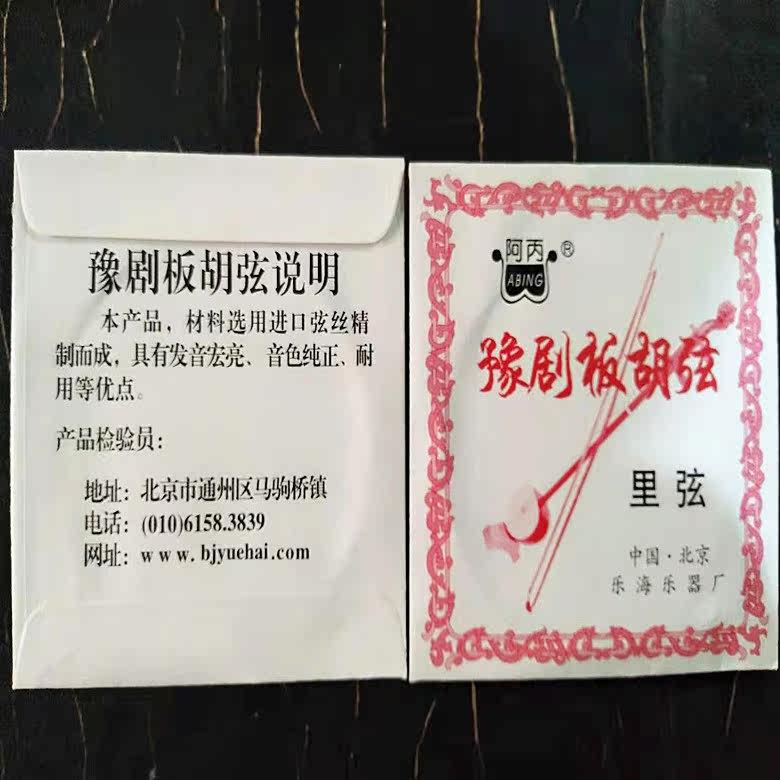 豫剧板胡弦说明
本产品，材料选用进口弦丝精
制而成，具有发音宏亮、音色纯正、耐
用等优点。
产品检验员：
地址：北京市通州区马驹桥镇
电话：(010)6158.3839
网址：www.bjyuehai.com
阿丙 ®
ABING
豫剧板胡弦
里弦
中国·北京
乐海乐器厂